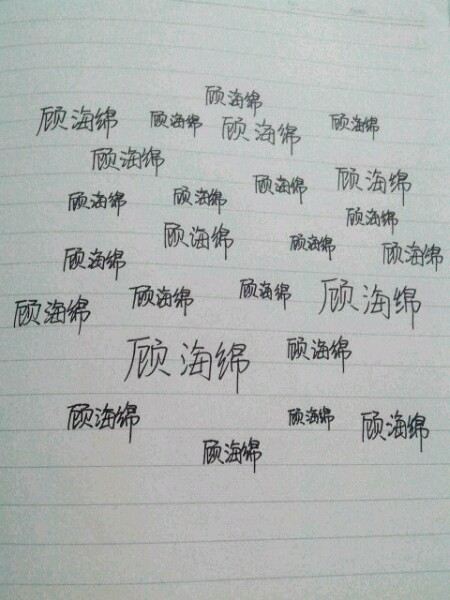 顾海绵
顾海绵 顾海绵 顾海绵 顾海绵
顾海绵
顾海绵 顾海绵
顾海绵 顾海绵 顾海绵
顾海绵 顾海绵 顾海绵
顾海绵
顾海绵 顾海绵 顾海绵 顾海绵
顾海绵 顾海绵
顾海绵 顾海绵 顾海绵
顾海绵